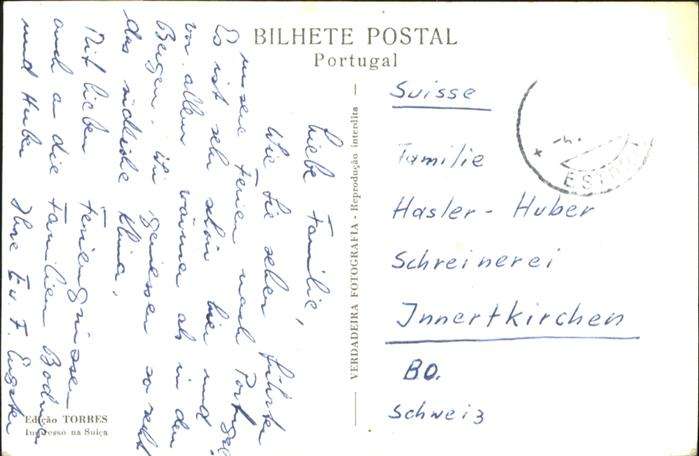 BILHETE POSTAL
Portugal
Liebe Familie,
Wie Sie sehen führten
unsere Ferien nach Portugal
Es ist sehr schön hier und
vor allem wärmer als in den
Bergen. Wir geniessen so recht
das südliche Klima.
Mit lieben Feriengrüssen
auch a die Familien
und Huber Ihre E u F.
VERDADEIRA FOTOGRAFIA - Reprodução interdita
Suisse
Familie
Hasler-Huber
Schreinerei
Innertkirchen
BO.
Schweiz
Edição TORRES
Impresso na Suiça